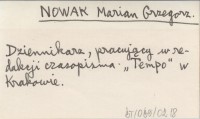 NOWAK Marian Grzegorz.
Dziennikarz, pracujący w re-
dakcji czasopisma "Tempo" w
Krakowie.